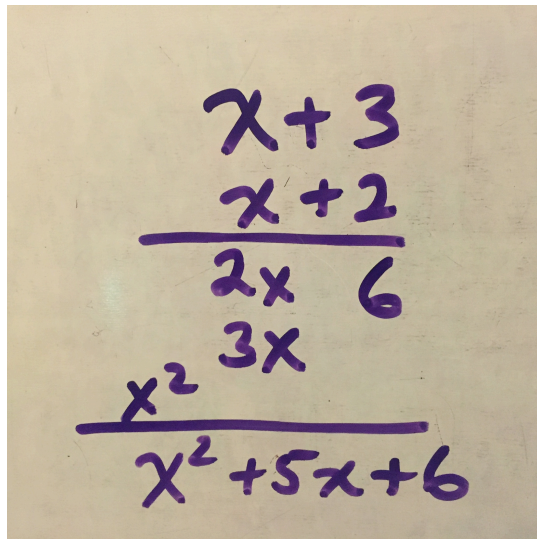 x+3
x+2
2x 6
3x
x²
x²+5x+6